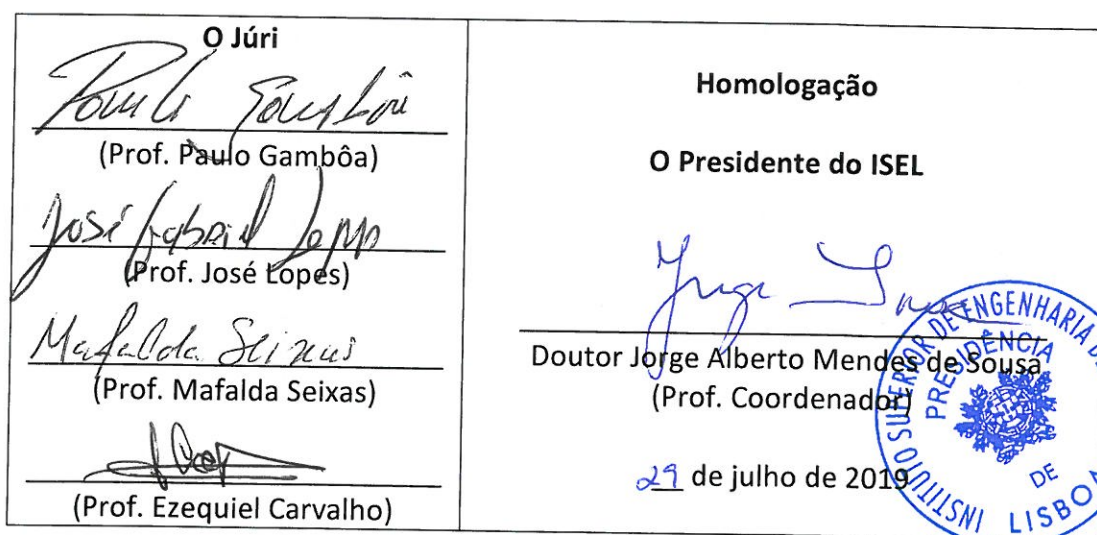 O Júri
(Prof. Paulo Gambôa)
José Gabriel Lopes
(Prof. José Lopes)
Mafalda Seixas
(Prof. Mafalda Seixas)
(Prof. Ezequiel Carvalho)
Homologação
O Presidente do ISEL
Jorge Sousa
Doutor Jorge Alberto Mendes de Sousa
(Prof. Coordenador)
29 de julho de 2019
INSTITUTO SUPERIOR DE ENGENHARIA DE
LISBOA
PRESIDÊNCIA
DE